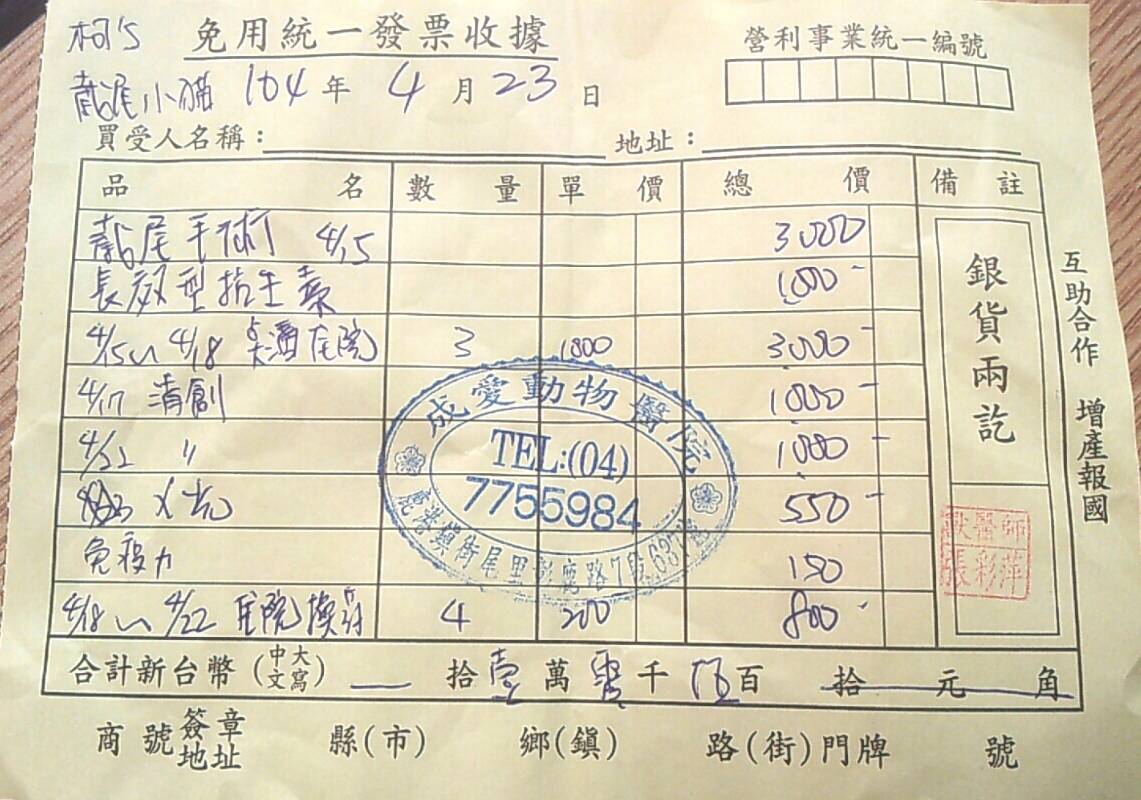 柯's 免用統一發票收據
營利事業統一編號
截尾小貓 104年 4月 23日
買受人名稱： 地址：
品名 數量 單價 總價 備註
截尾手術 4/15 3000
長效型抗生素 1000-
4/15~4/18 點滴住院 3 1000 3000-
4/17 清創 1000-
4/22 〃 1000-
X光 550-
免疫力 150
4/18~4/22 住院換藥 4 200 800-
合計新台幣(中文大寫) 拾壹萬零千伍百拾元角
商號簽章地址 縣(市) 鄉(鎮) 路(街)門牌 號
銀貨兩訖
互助合作 增產報國
成愛動物醫院
TEL:(04)
7755984
鹿港鎮街尾里彰鹿路7段637號
獸醫師
張彩萍